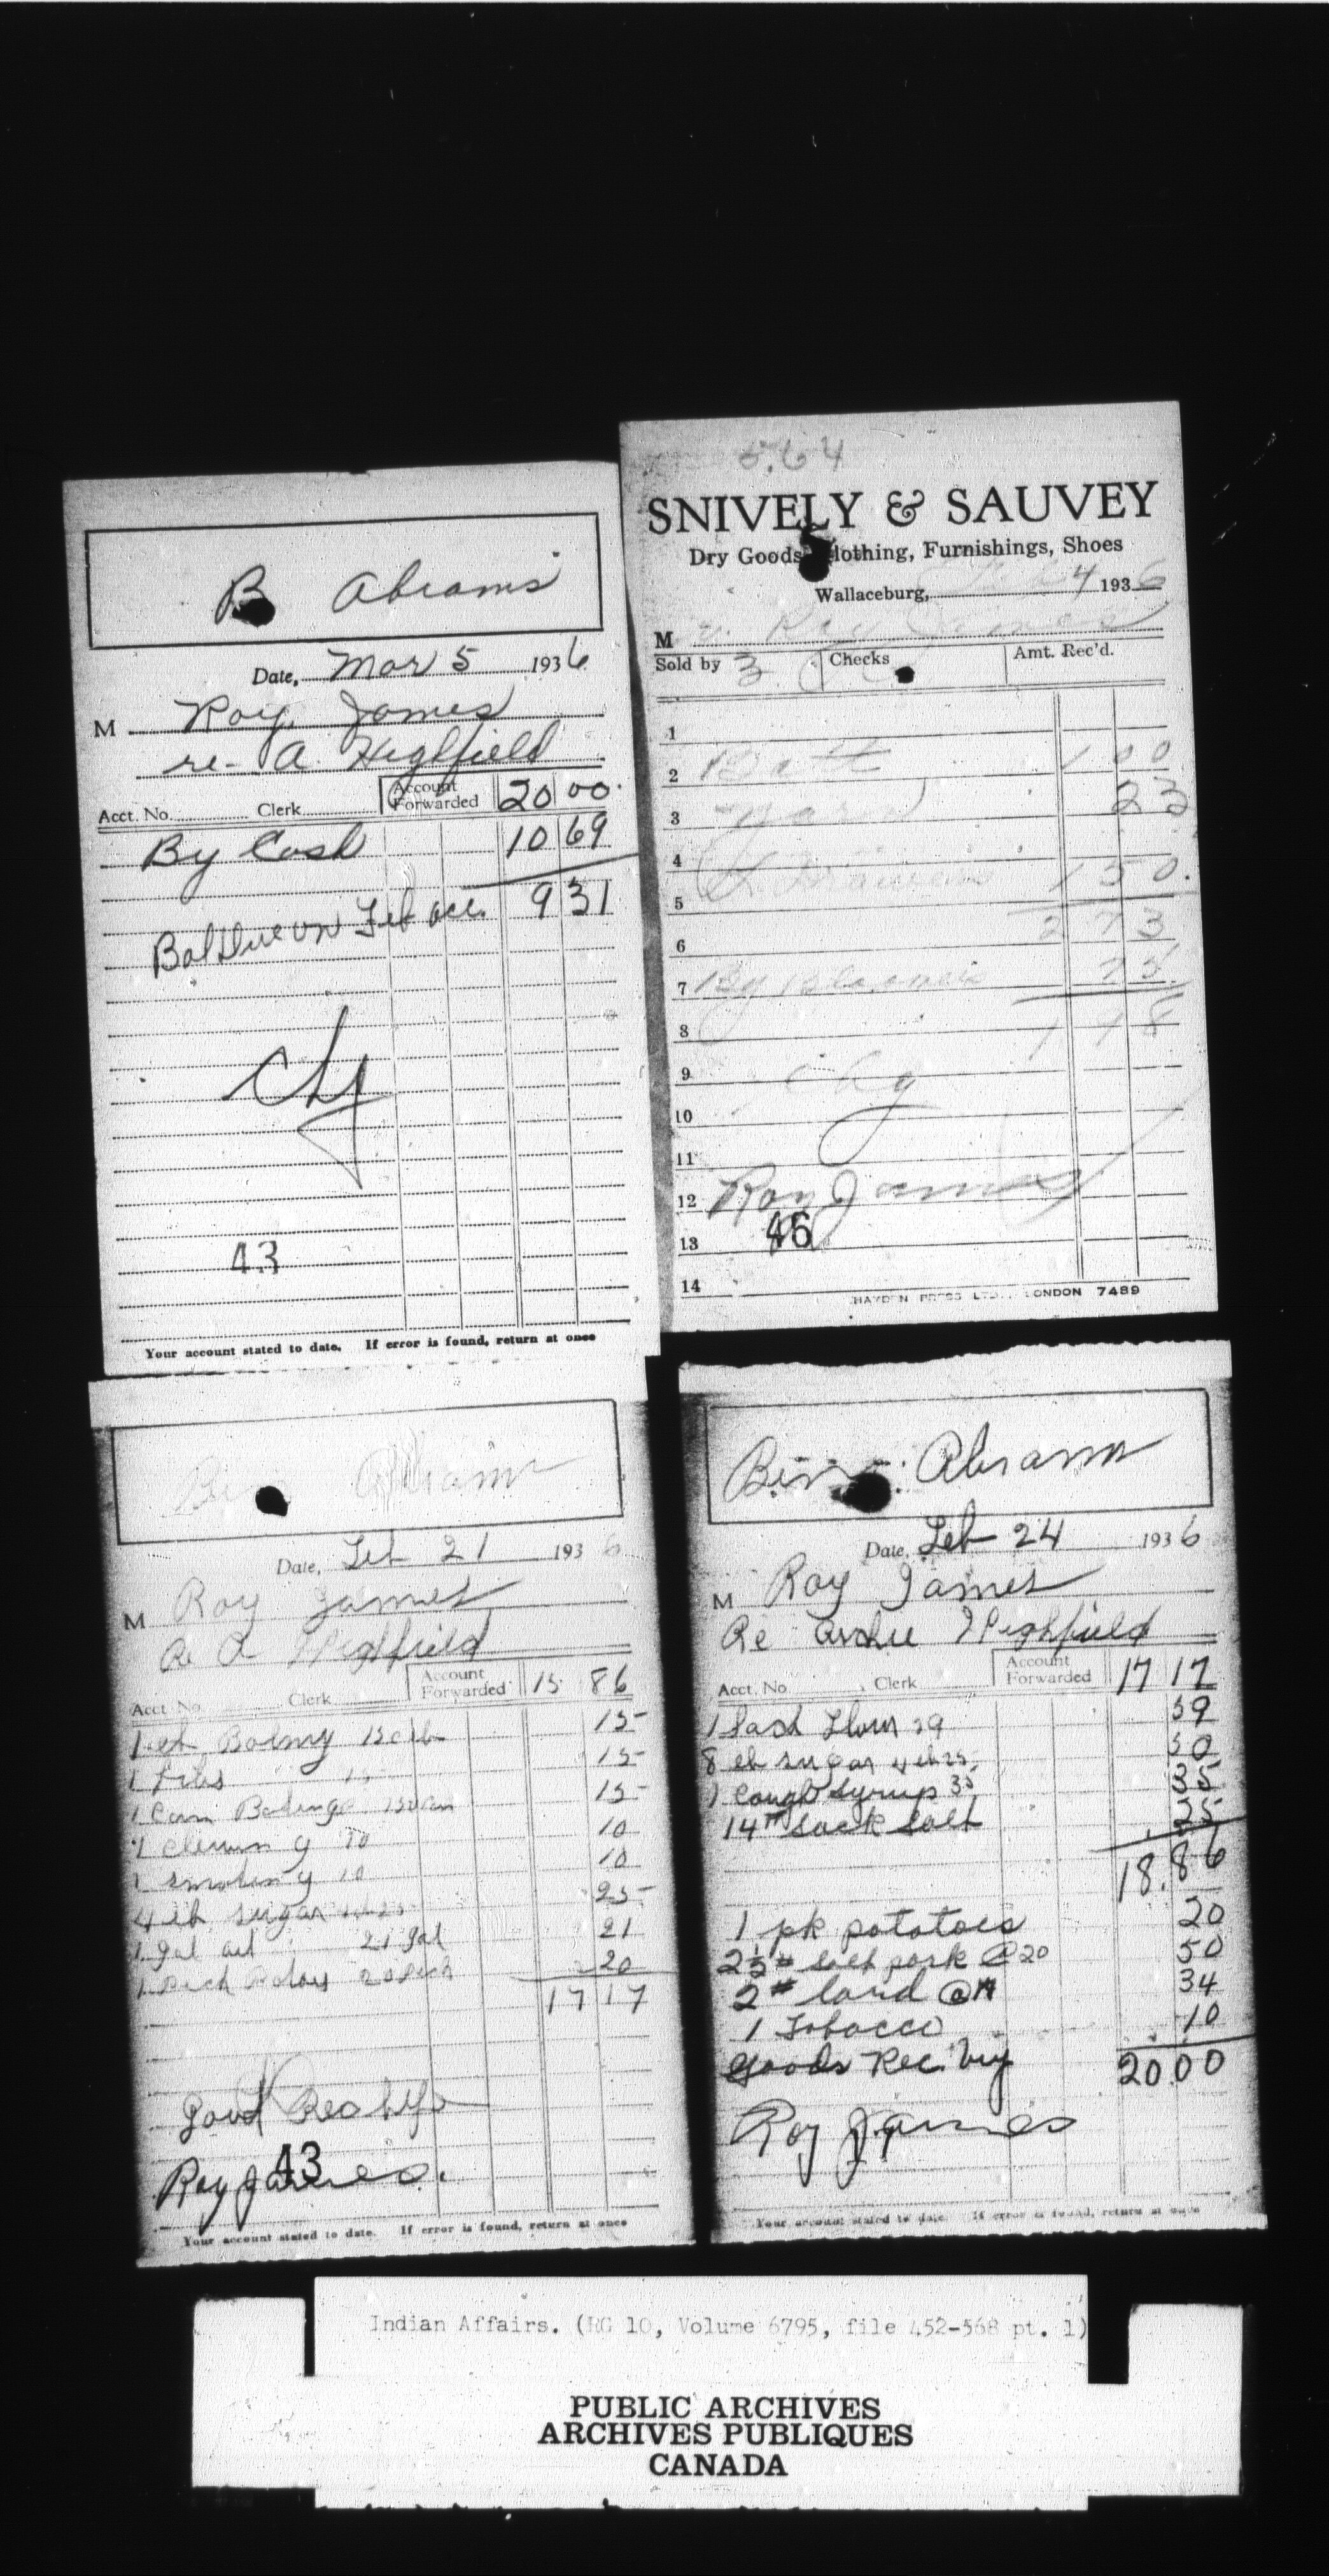 B Abrams
Date, Mar 5 1936
M Roy James
re- A Highfield
Acct. No. Clerk Account Forwarded 20 00
By Cash 10 69
9 31
Bal Due on Feb acc.
Chg
43
Your account stated to date. If error is found, return at once
5.64
SNIVELY & SAUVEY
Dry Goods, Clothing, Furnishings, Shoes
Wallaceburg, Feb 4 1936
M r. Roy James
Sold by 3 Checks Amt. Rec'd.
1
2 Batt 1 00
3 yarn 23
4
5 1 50
6 2 73
7 By 75
8 1 98
9 chg
10
11
12 Roy James
13 46
14
HAYDEN PRESS LTD., LONDON 7489
Ben Abram
Date, Feb 21 1936
M Roy James
Re A Highfield
Acct. No. Clerk Account Forwarded 15 86
1 lb 15c lb 15
1 15 15
1 Can 15
1 10 10
1 smoking 10 10
4 lb sugar 25
1 gal oil 21 gal 21
1 Peck 20 Peck 20
17 17
Good
43
Roy James.
Your account stated to date. If error is found, return at once
Ben Abram
Date, Feb 24 1936
M Roy James
Re Archie Highfield
Acct. No. Clerk Account Forwarded 17 17
1 Flour 59 59
8 lb sugar 4 lb 25 50
1 Cough Syrup 35 35
14# Sack Salt 25
18.86
1 pk potatoes 20
2½# salt pork @ 20 50
2# lard @ 17 34
1 Tobacco 10
Goods Rec by 20.00
Roy James
Your account stated to date. If error is found, return at once
Indian Affairs. (RG 10, Volume 6795, file 452-568 pt. 1)
PUBLIC ARCHIVES
ARCHIVES PUBLIQUES
CANADA